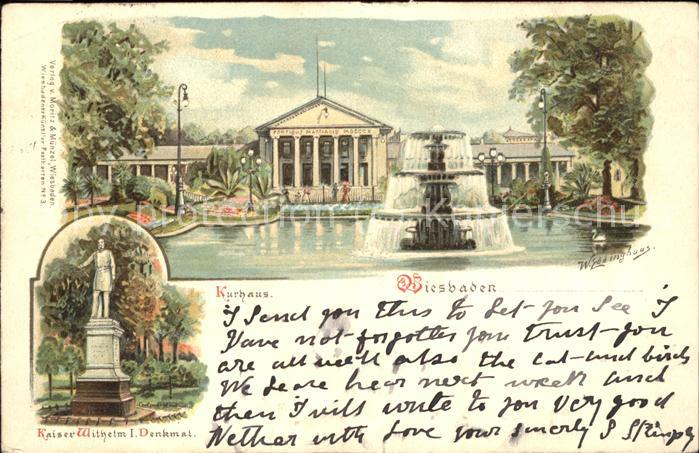 Verlag v. Moritz & Münzel, Wiesbaden.
Wiesbadener Künstler Postkarten No 3.
Kurhaus.
Wiesbaden
I Send you this to Let you See I
Have not forgotten you trust you
are all well also the Cat and birds
We Leave hear next week and
then I will write to you Very good
Wether with Love your sincerly S
Kaiser Wilhelm I. Denkmal.